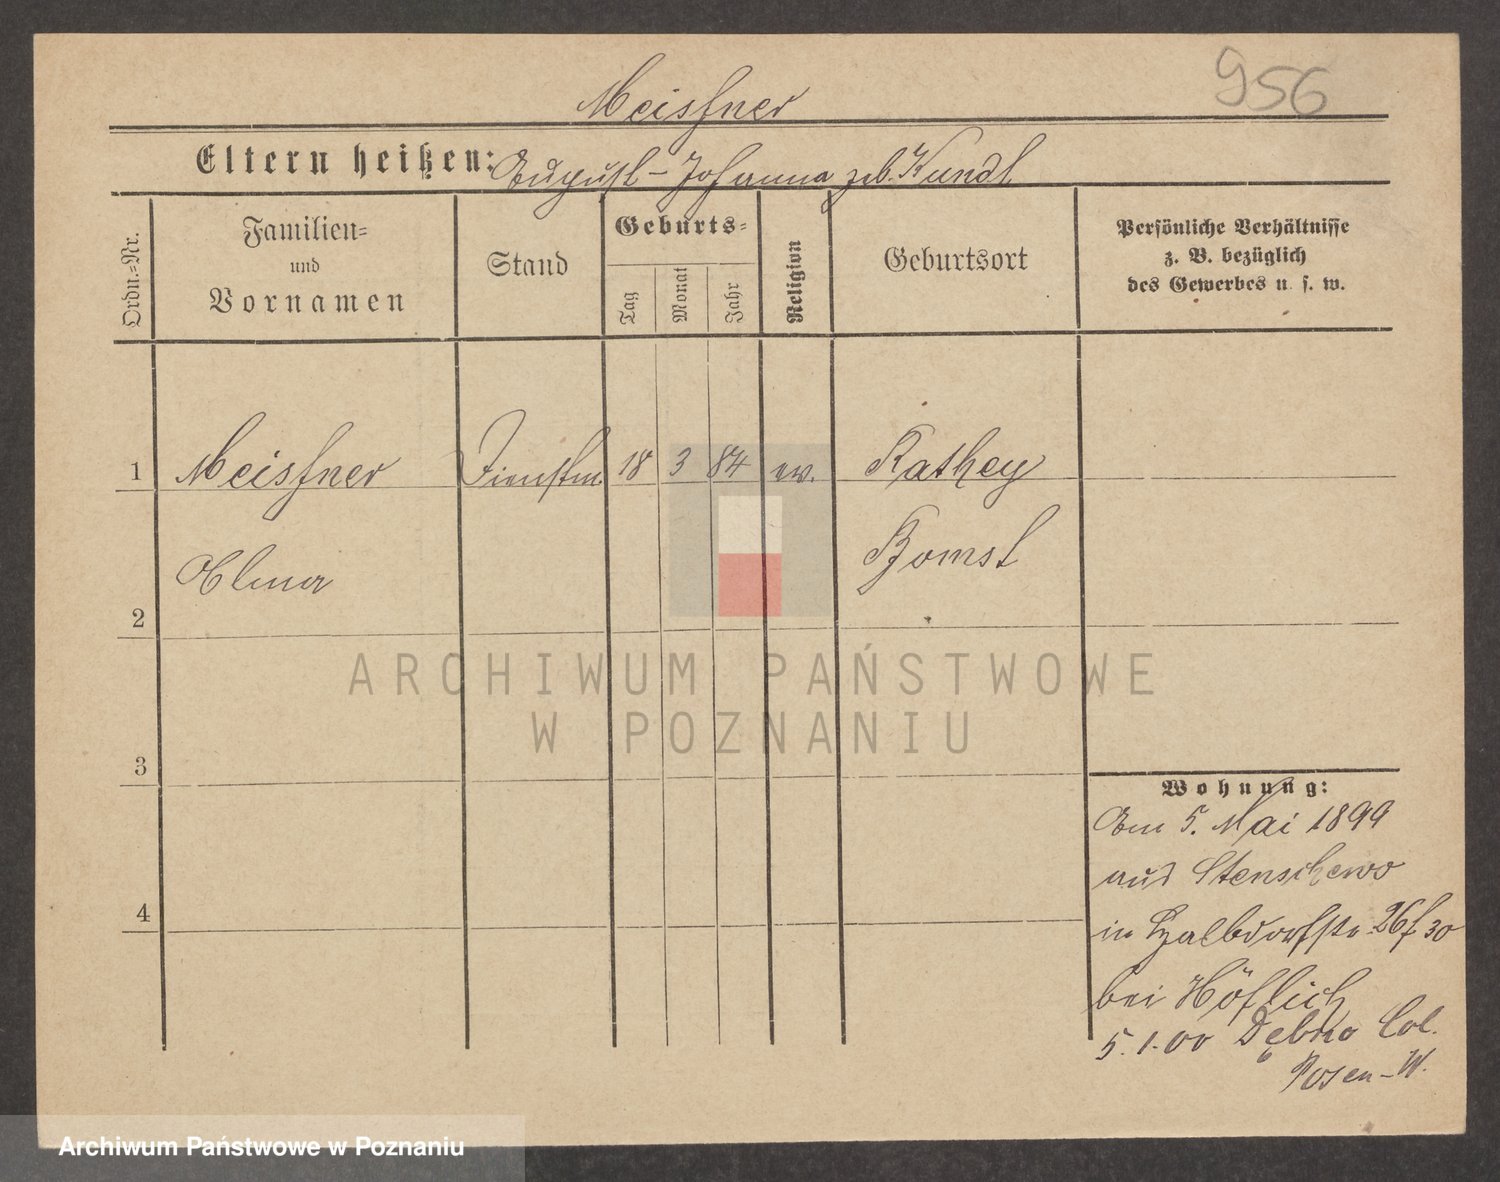 956
Meißner
Eltern heißen: August - Johanna geb. Kundt
Ordn.=Nr.
Familien=
und
Vornamen
Stand
Geburts=
Tag
Monat
Jahr
Religion
Geburtsort
Persönliche Verhältnisse
z. B. bezüglich
des Gewerbes u. s. w.
1 Meißner Dienstm. 18 3 84 ev. Rathey
Alma Bomst
2
ARCHIWUM PAŃSTWOWE
W POZNANIU
3
Wohnung:
Am 5. Mai 1899
aus Stenschewo
in Halbdorfstr 26
bei Höflich
4
5.1.00 Dębno Col.
Posen-W.
Archiwum Państwowe w Poznaniu